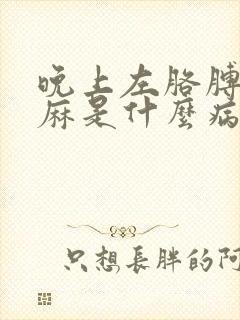 晚上左胳膊
麻是什麼病
只想長胖的阿